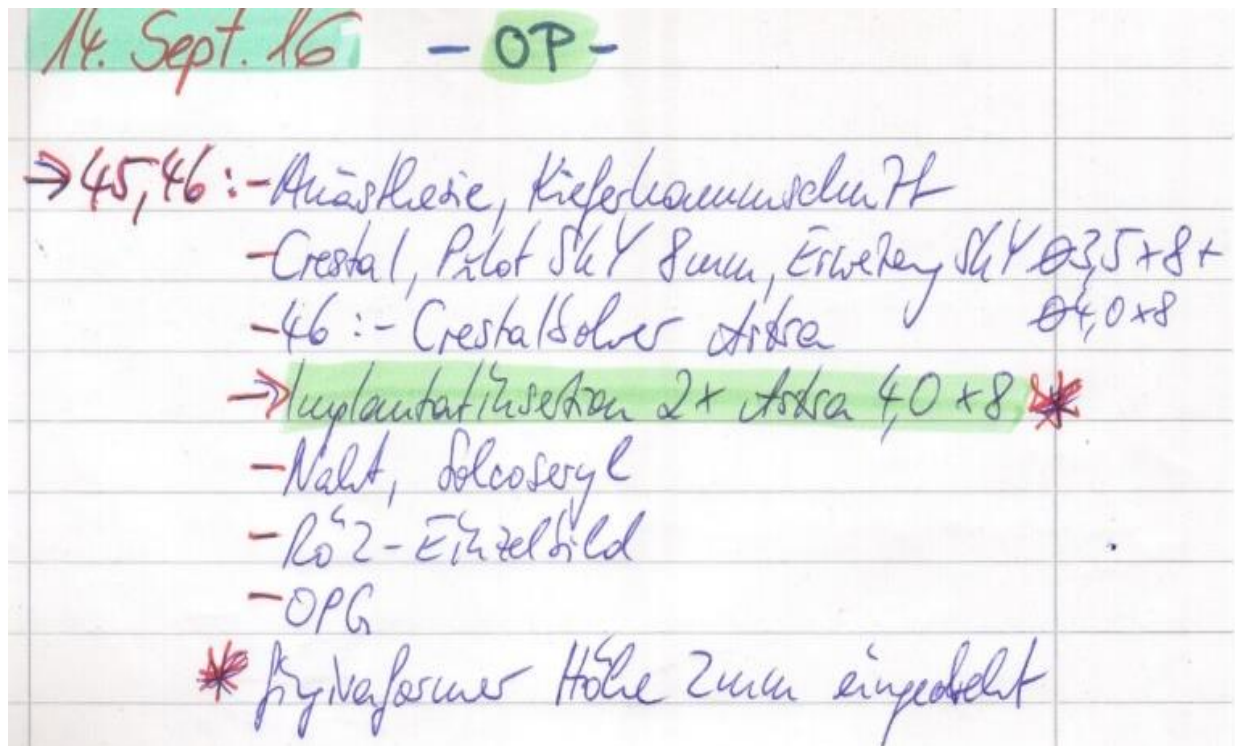 14. Sept. 16 - OP -
→ 45, 46 : - Anästhesie, Kieferkammschnitt
- Crestal, Pilot SKY 8mm, Erweiterung SKY ⌀3,5 x 8 +
⌀4,0 x 8
- 46 : - Crestalbohrer Astra
→ Implantatinsertion 2x Astra 4,0 x 8 *
- Naht, Solcoseryl
- Rö 2 - Einzelbild
- OPG
* Gingivaformer Höhe 2mm eingedreht